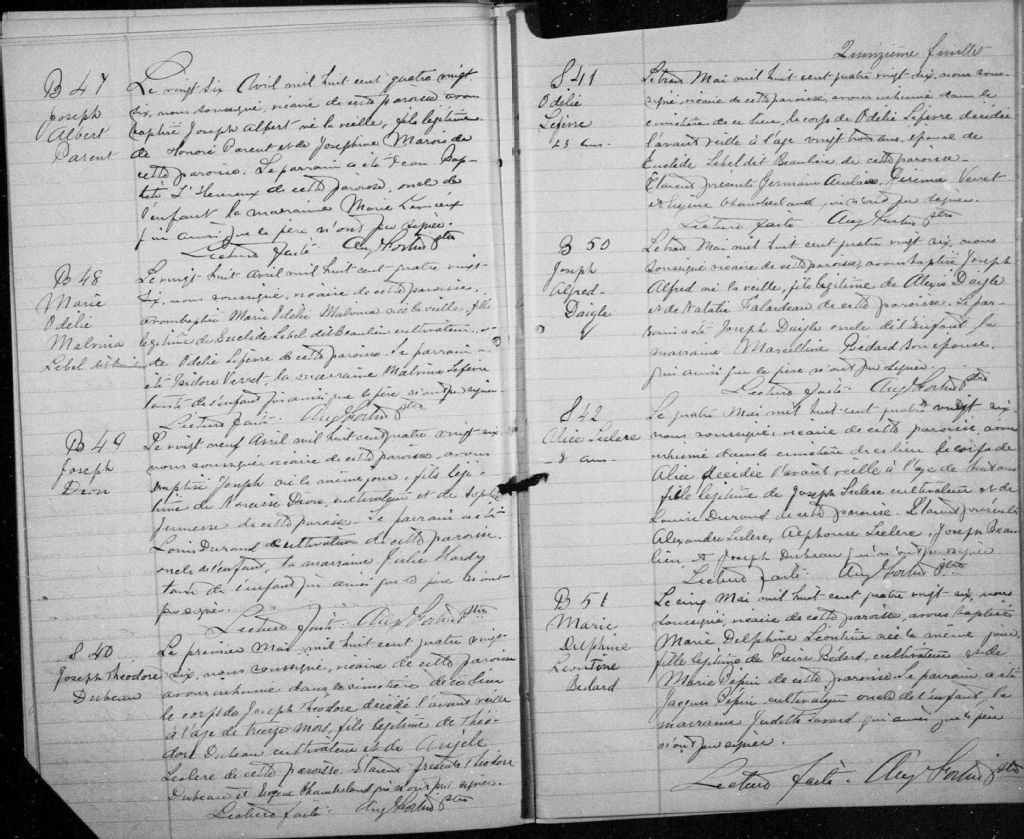 B 47
Joseph
Albert
Parent
Le vingt six Avril mil huit cent quatre vingt
six, nous soussigné, vicaire de cette paroisse avons
baptisé Joseph Albert né la veille, fils légitime
de Honoré Parent et de Josephine Marois de
cette paroisse. Le parrain a été Jean Bap-
tiste L'Heureux de cette paroisse, oncle de
l'enfant, la marraine Marie Lemieux
qui ainsi que le père n'ont pu signer.
Lecture faite. Aug Fortin ptre
B 48
Marie
Odélie
Malvina
Lebel dit Beaulieu
Le vingt huit avril mil huit cent quatre vingt-
six, nous soussigné, vicaire de cette paroisse,
avons baptisé Marie Odélie Malvina née la veille, fille
légitime de Euclide Lebel dit Beaulieu cultivateur, et
de Odélie Lefevre de cette paroisse. Le parrain a
été Isidore Verret, la marraine Malvina Lefevre
tante de l'enfant qui ainsi que le père n'ont pu signer
Lecture faite. Aug Fortin ptre
B 49
Joseph
Dion
Le vingt neuf Avril mil huit cent quatre vingt six
nous soussigné, vicaire de cette paroisse, avons
baptisé Joseph né le même jour, fils légi-
time de Narcisse Dion, cultivateur et de Sophie
Jeunesse de cette paroisse. Le parrain a été
Louis Durand cultivateur de cette paroisse.
oncle de l'enfant, la marraine Julie Hardy
tante de l'enfant qui ainsi que le père n'ont
pu signer.
Lecture faite. Aug Fortin ptre
S 40
Joseph Théodore
Dubeau
Le premier Mai mil huit cent quatre vingt-
six, nous soussigné, vicaire de cette paroisse
avons inhumé dans le cimetière de ce lieu
le corps de Joseph Théodore décédé l'avant veille
à l'âge de treize mois, fils légitime de Théo-
dore Dubeau cultivateur et de Angèle
Leclerc de cette paroisse. Etaient présents Théodore
Dubeau et Eugène Chamberland qui n'ont pu signer.
Lecture faite. Aug Fortin ptre
Quinzième feuillet
S 41
Odélie
Lefevre
23 ans
Le trois Mai mil huit cent quatre vingt six, nous sous-
signé, vicaire de cette paroisse, avons inhumé dans le
cimetière de ce lieu, le corps de Odélie Lefevre décédée
l'avant veille à l'âge vingt trois ans, épouse de
Euclide Lebel dit Beaulieu de cette paroisse.
Etaient présents Germain Verret
et Eugène Chamberland qui n'ont pu signer.
Lecture faite Aug Fortin ptre
B 50
Joseph
Alfred
Daigle
Le trois Mai mil huit cent quatre vingt six, nous
soussigné vicaire de cette paroisse, avons baptisé Joseph
Alfred né la veille, fils légitime de Alexis Daigle
et de Natalie Falardeau de cette paroisse. Le par-
rain a été Joseph Daigle oncle de l'enfant la
marraine Marcelline Bedard son épouse.
qui ainsi que le père n'ont pu signer.
Lecture faite. Aug Fortin ptre
S 42
Alice Leclerc
8 ans
Le quatre Mai mil huit cent quatre vingt six
nous soussigné, vicaire de cette paroisse, avons
inhumé dans le cimetière de ce lieu le corps de
Alice décédée l'avant veille à l'âge de huit ans
fille légitime de Joseph Leclerc cultivateur et de
Louise Durand de cette paroisse. Etaient présents
Alexandre Leclerc, Alphonse Leclerc, Joseph Beau-
lieu et Joseph Dubeau qui n'ont pu signer
Lecture faite. Aug Fortin ptre
B 51
Marie
Delphine
Léontine
Bedard
Le cinq Mai mil huit cent quatre vingt six, nous
soussigné, vicaire de cette paroisse, avons baptisé
Marie Delphine Léontine née le même jour,
fille légitime de Pierre Bedard, cultivateur et de
Marie Pépin de cette paroisse. Le parrain a été
Jacques Pépin cultivateur oncle de l'enfant la
marraine Judith Savard qui ainsi que le père
n'ont pu signer.
Lecture faite. Aug Fortin ptre